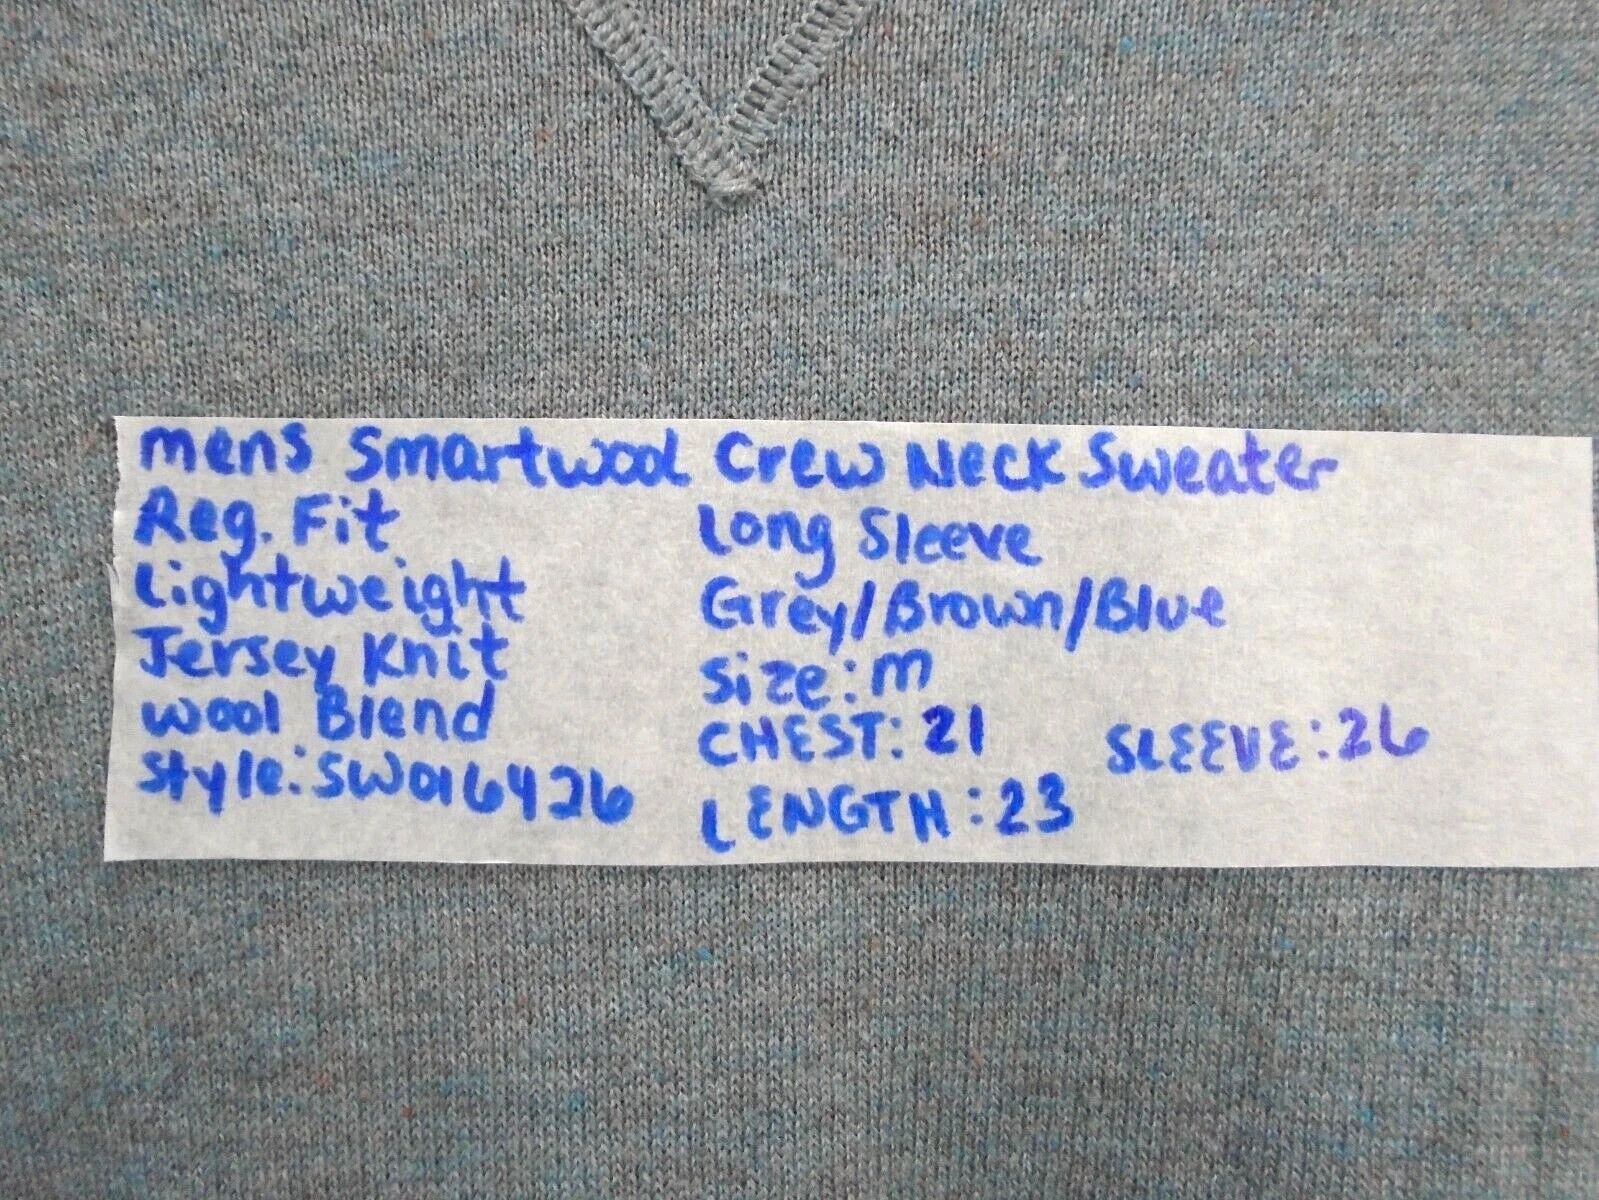 mens Smartwool Crew Neck Sweater
Reg. Fit
Lightweight
Jersey Knit
wool Blend
Style: SW016426
Long Sleeve
Grey/Brown/Blue
Size: m
CHEST: 21 SLEEVE: 26
LENGTH: 23